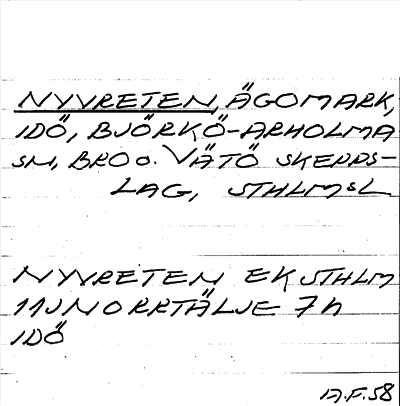 NYVRETEN, ÄGOMARK,
IDÖ, BJÖRKÖ-ARHOLMA
SN, BRO O. VÄTÖ SKEPPS-
LAG, STHLMSL
NYVRETEN EK STHLM
11J NORRTÄLJE 7h
IDÖ
A.F. 58